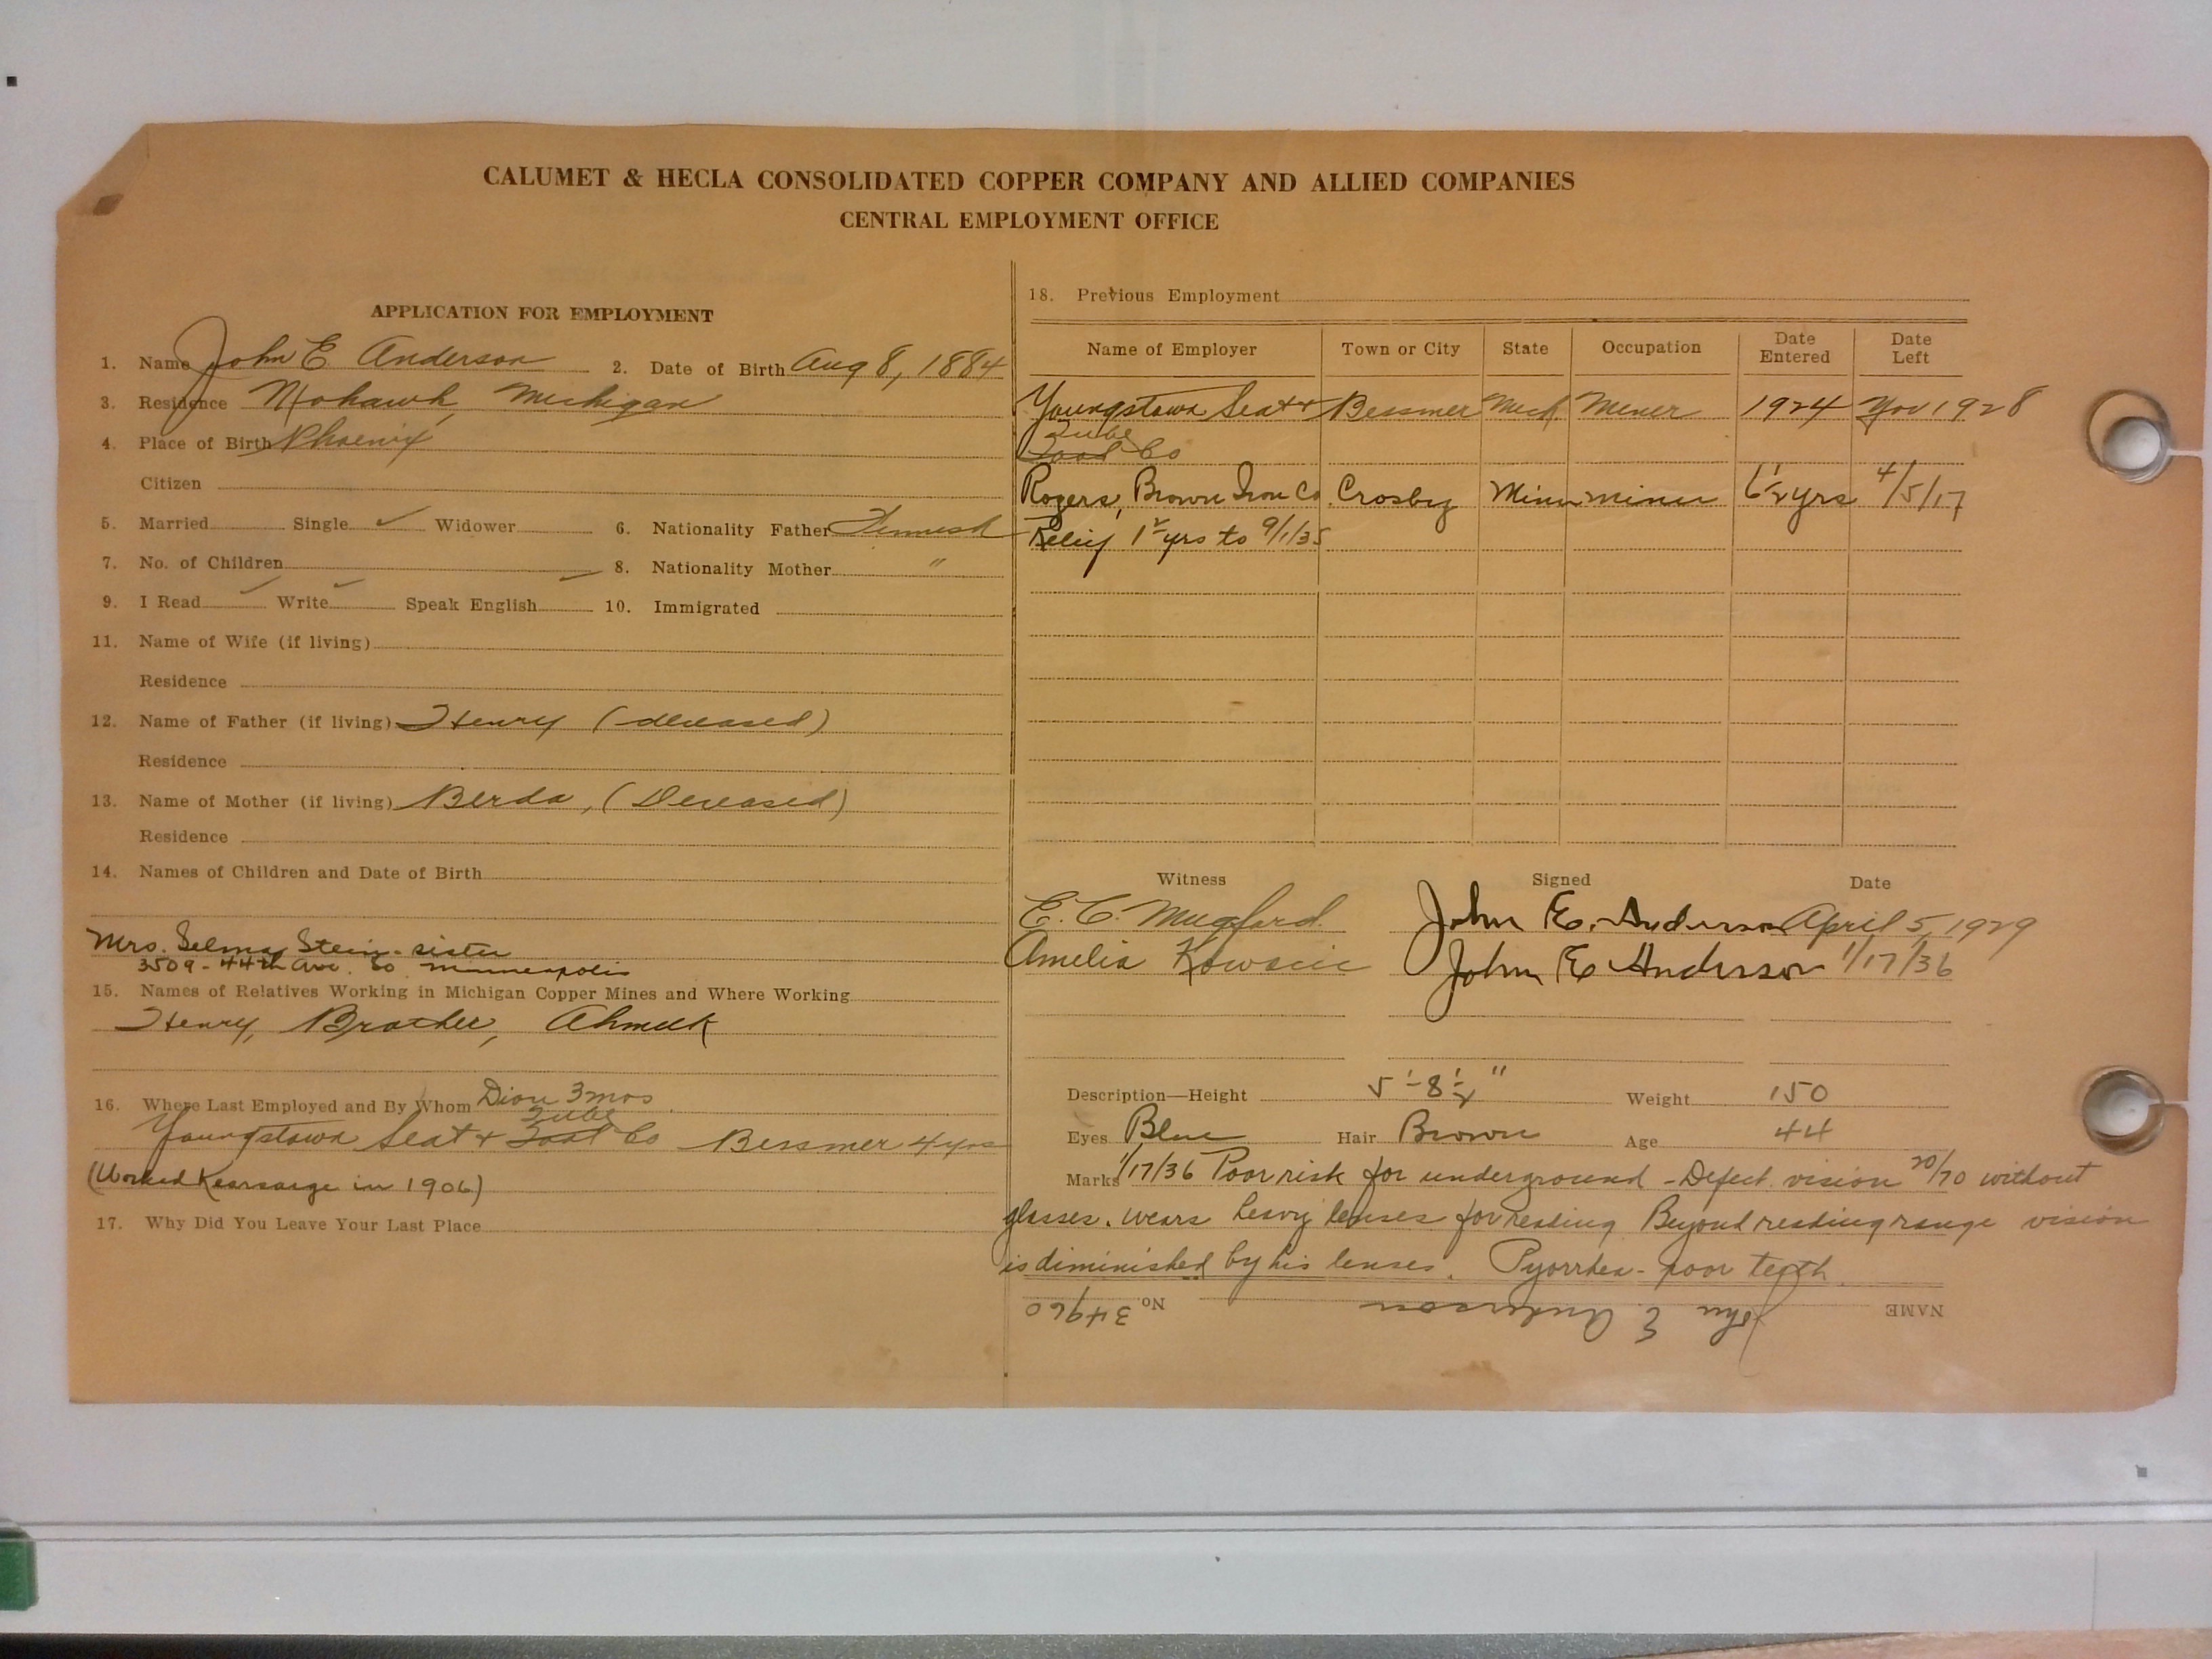 CALUMET & HECLA CONSOLIDATED COPPER COMPANY AND ALLIED COMPANIES
CENTRAL EMPLOYMENT OFFICE
APPLICATION FOR EMPLOYMENT
1. Name John E Anderson 2. Date of Birth Aug 8, 1884
3. Residence Mohawk, Michigan
4. Place of Birth Phoenix
Citizen
5. Married Single ✓ Widower 6. Nationality Father Finnish
7. No. of Children 8. Nationality Mother "
9. I Read ✓ Write ✓ Speak English ✓ 10. Immigrated
11. Name of Wife (if living)
Residence
12. Name of Father (if living) Henry (deceased)
Residence
13. Name of Mother (if living) Berda, (Deceased)
Residence
14. Names of Children and Date of Birth
Mrs. Selma Stein - sister
3509 - 44th Ave. So. Minneapolis
15. Names of Relatives Working in Michigan Copper Mines and Where Working
Henry, Brother, Ahmeek
16. Where Last Employed and By Whom Dion 3 mos
Tube
Youngstown Seat & Co Bessmer 4 yrs
(Worked Kearsarge in 1906)
17. Why Did You Leave Your Last Place
18. Previous Employment
Name of Employer Town or City State Occupation Date Entered Date Left
Youngstown Seat & Bessmer Mich Miner 1924 Nov 1928
Tube
Co
Rogers, Brown Iron Co. Crosby Minn miner 6½ yrs 4/5/17
Relief 1½ yrs to 9/1/35
Witness Signed Date
E. C. Mugford John E. Anderson April 5, 1929
Amelia John E Anderson 1/17/36
Description—Height 5'-8½" Weight 150
Eyes Blue Hair Brown Age 44
Marks 1/17/36 Poor risk for underground - Defect. vision 20/70 without
glasses. wears heavy lenses for reading Beyond reading range vision
is diminished by his lenses. Pyorrhea - poor teeth
NAME John E Anderson No. 34960